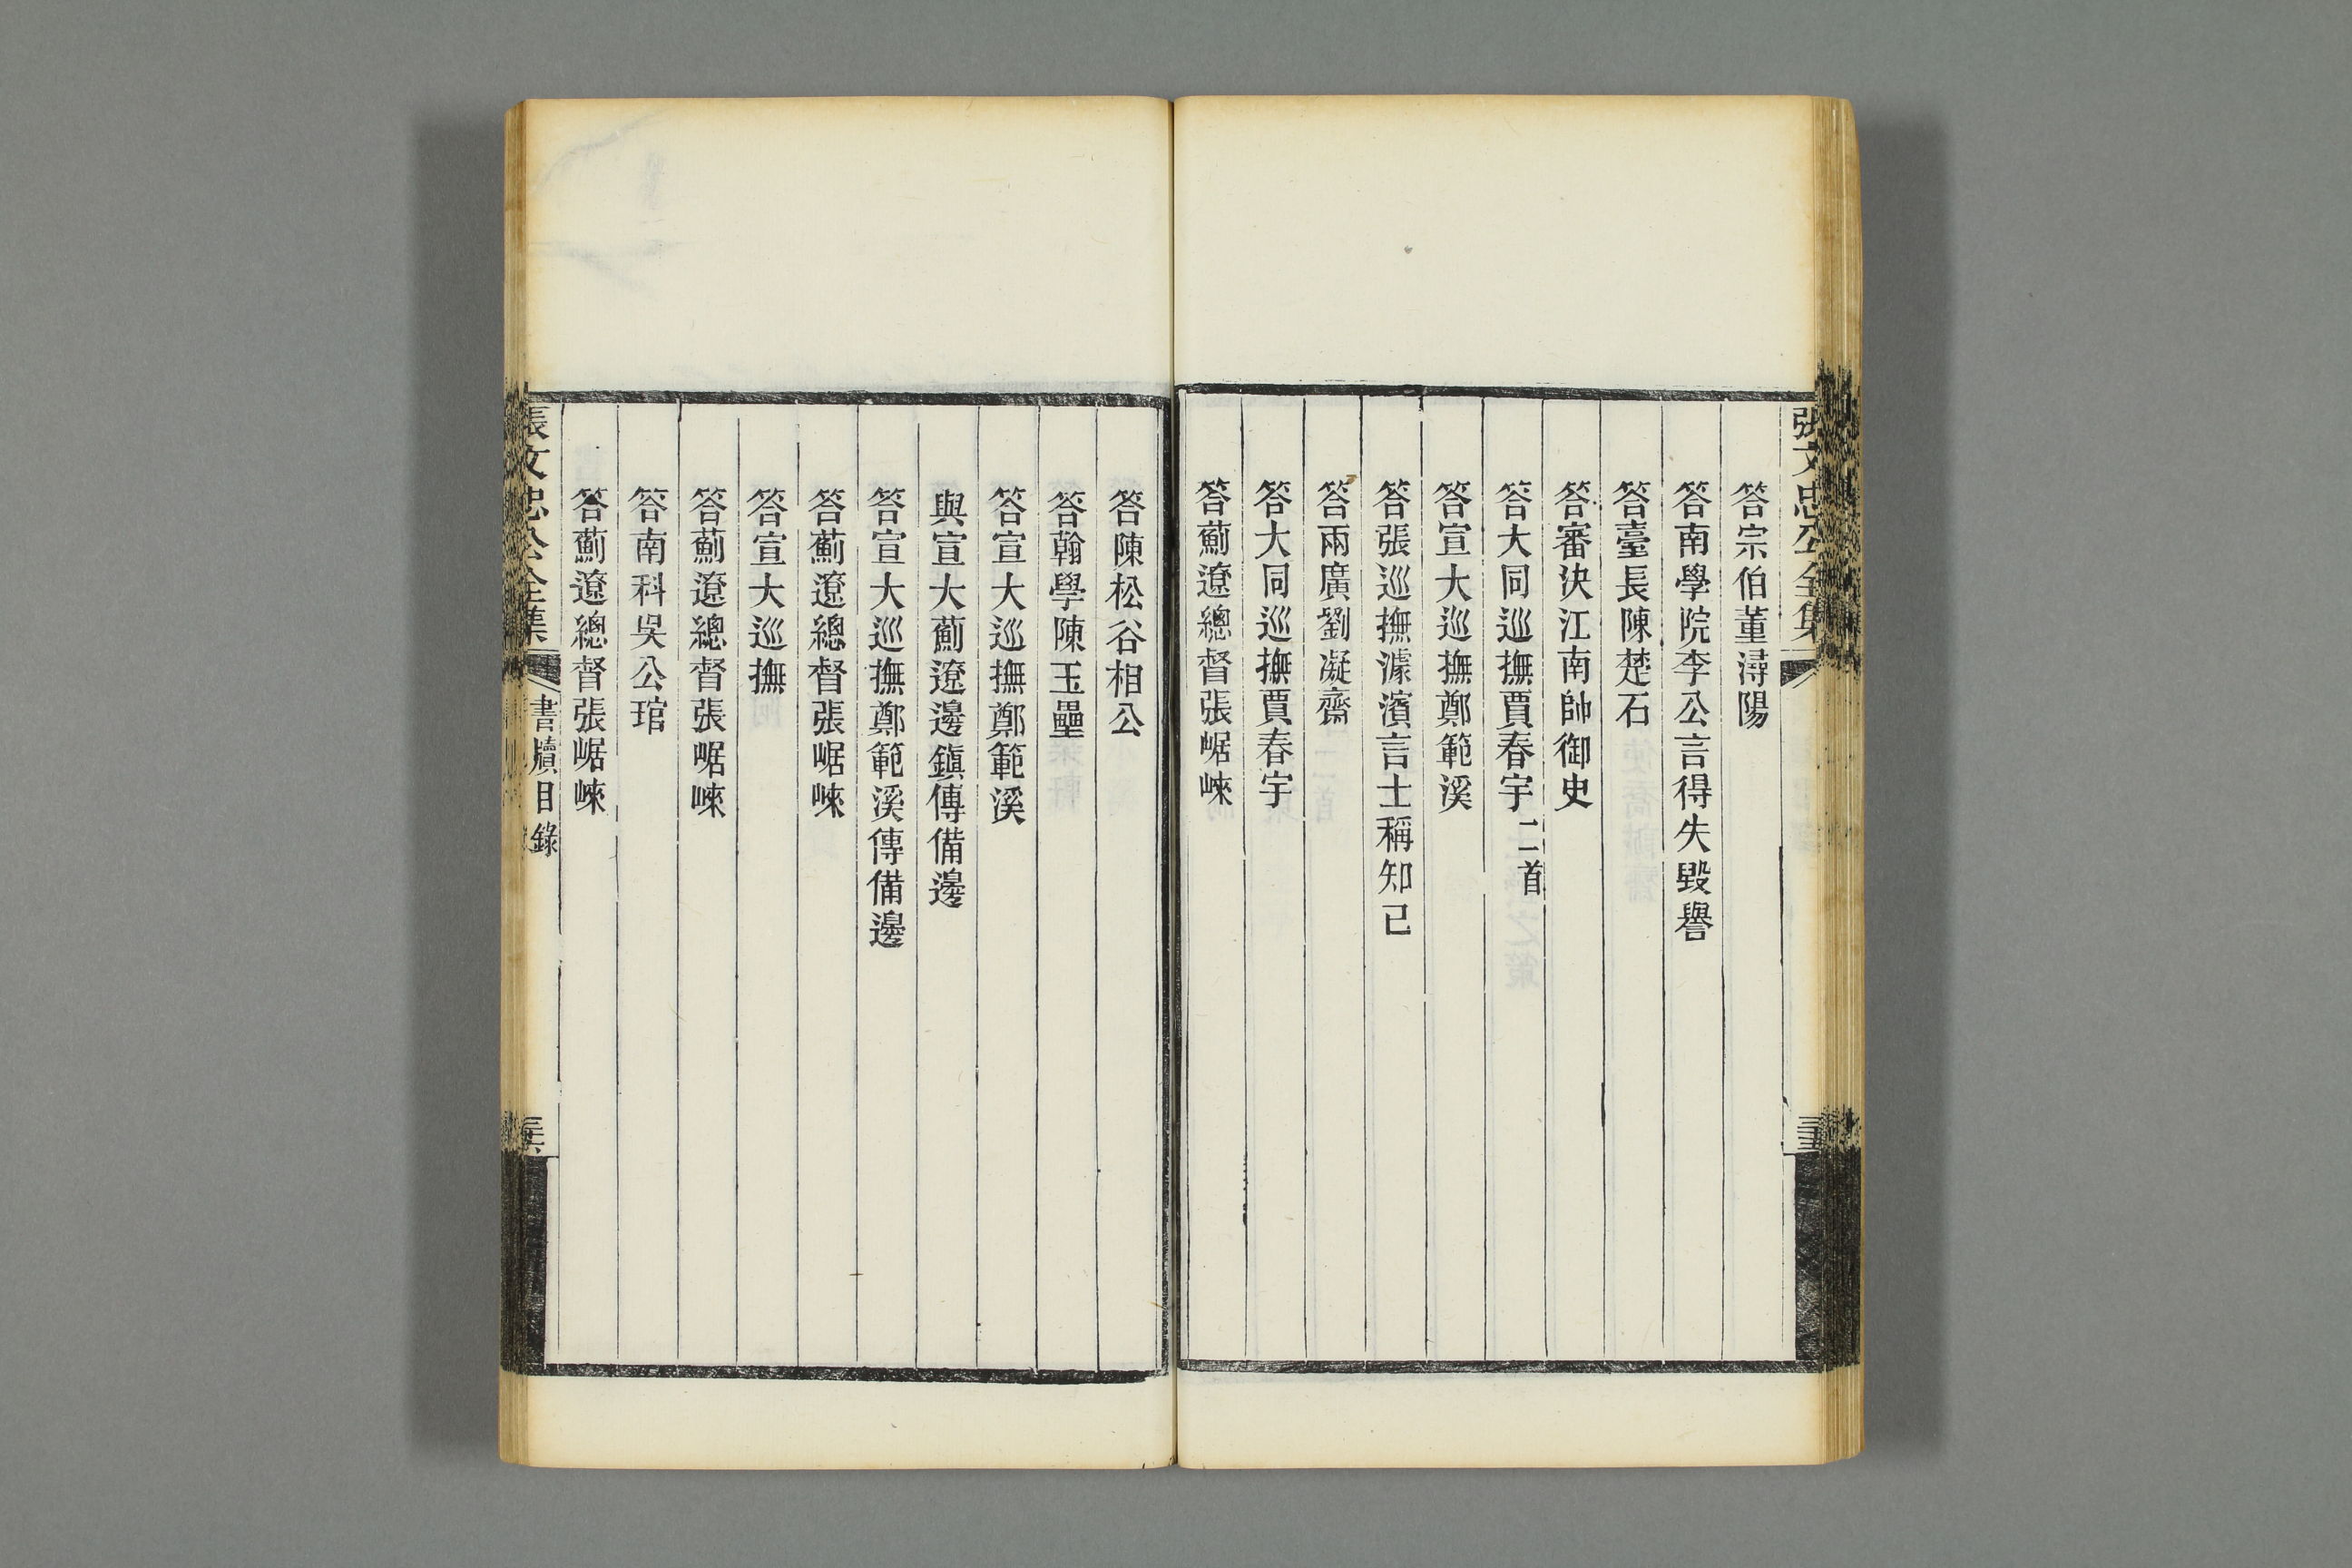 張文忠公全集
答宗伯董潯陽
答南學院李公言得失毀譽
答臺長陳楚石
答審決江南帥御史
答大同巡撫賈春宇二首
答宣大巡撫鄭範溪
答張巡撫濠濱言士稱知己
答兩廣劉凝齋
答大同巡撫賈春宇
答薊遼總督張崌崍
答陳松谷相公
答翰學陳玉壘
答宣大巡撫鄭範溪
與宣大薊遼邊鎮傳備邊
答宣大巡撫鄭範溪傳備邊
答薊遼總督張崌崍
答宣大巡撫
答薊遼總督張崌崍
答南科吳公琯
答薊遼總督張崌崍
張文忠公全集
書牘目錄